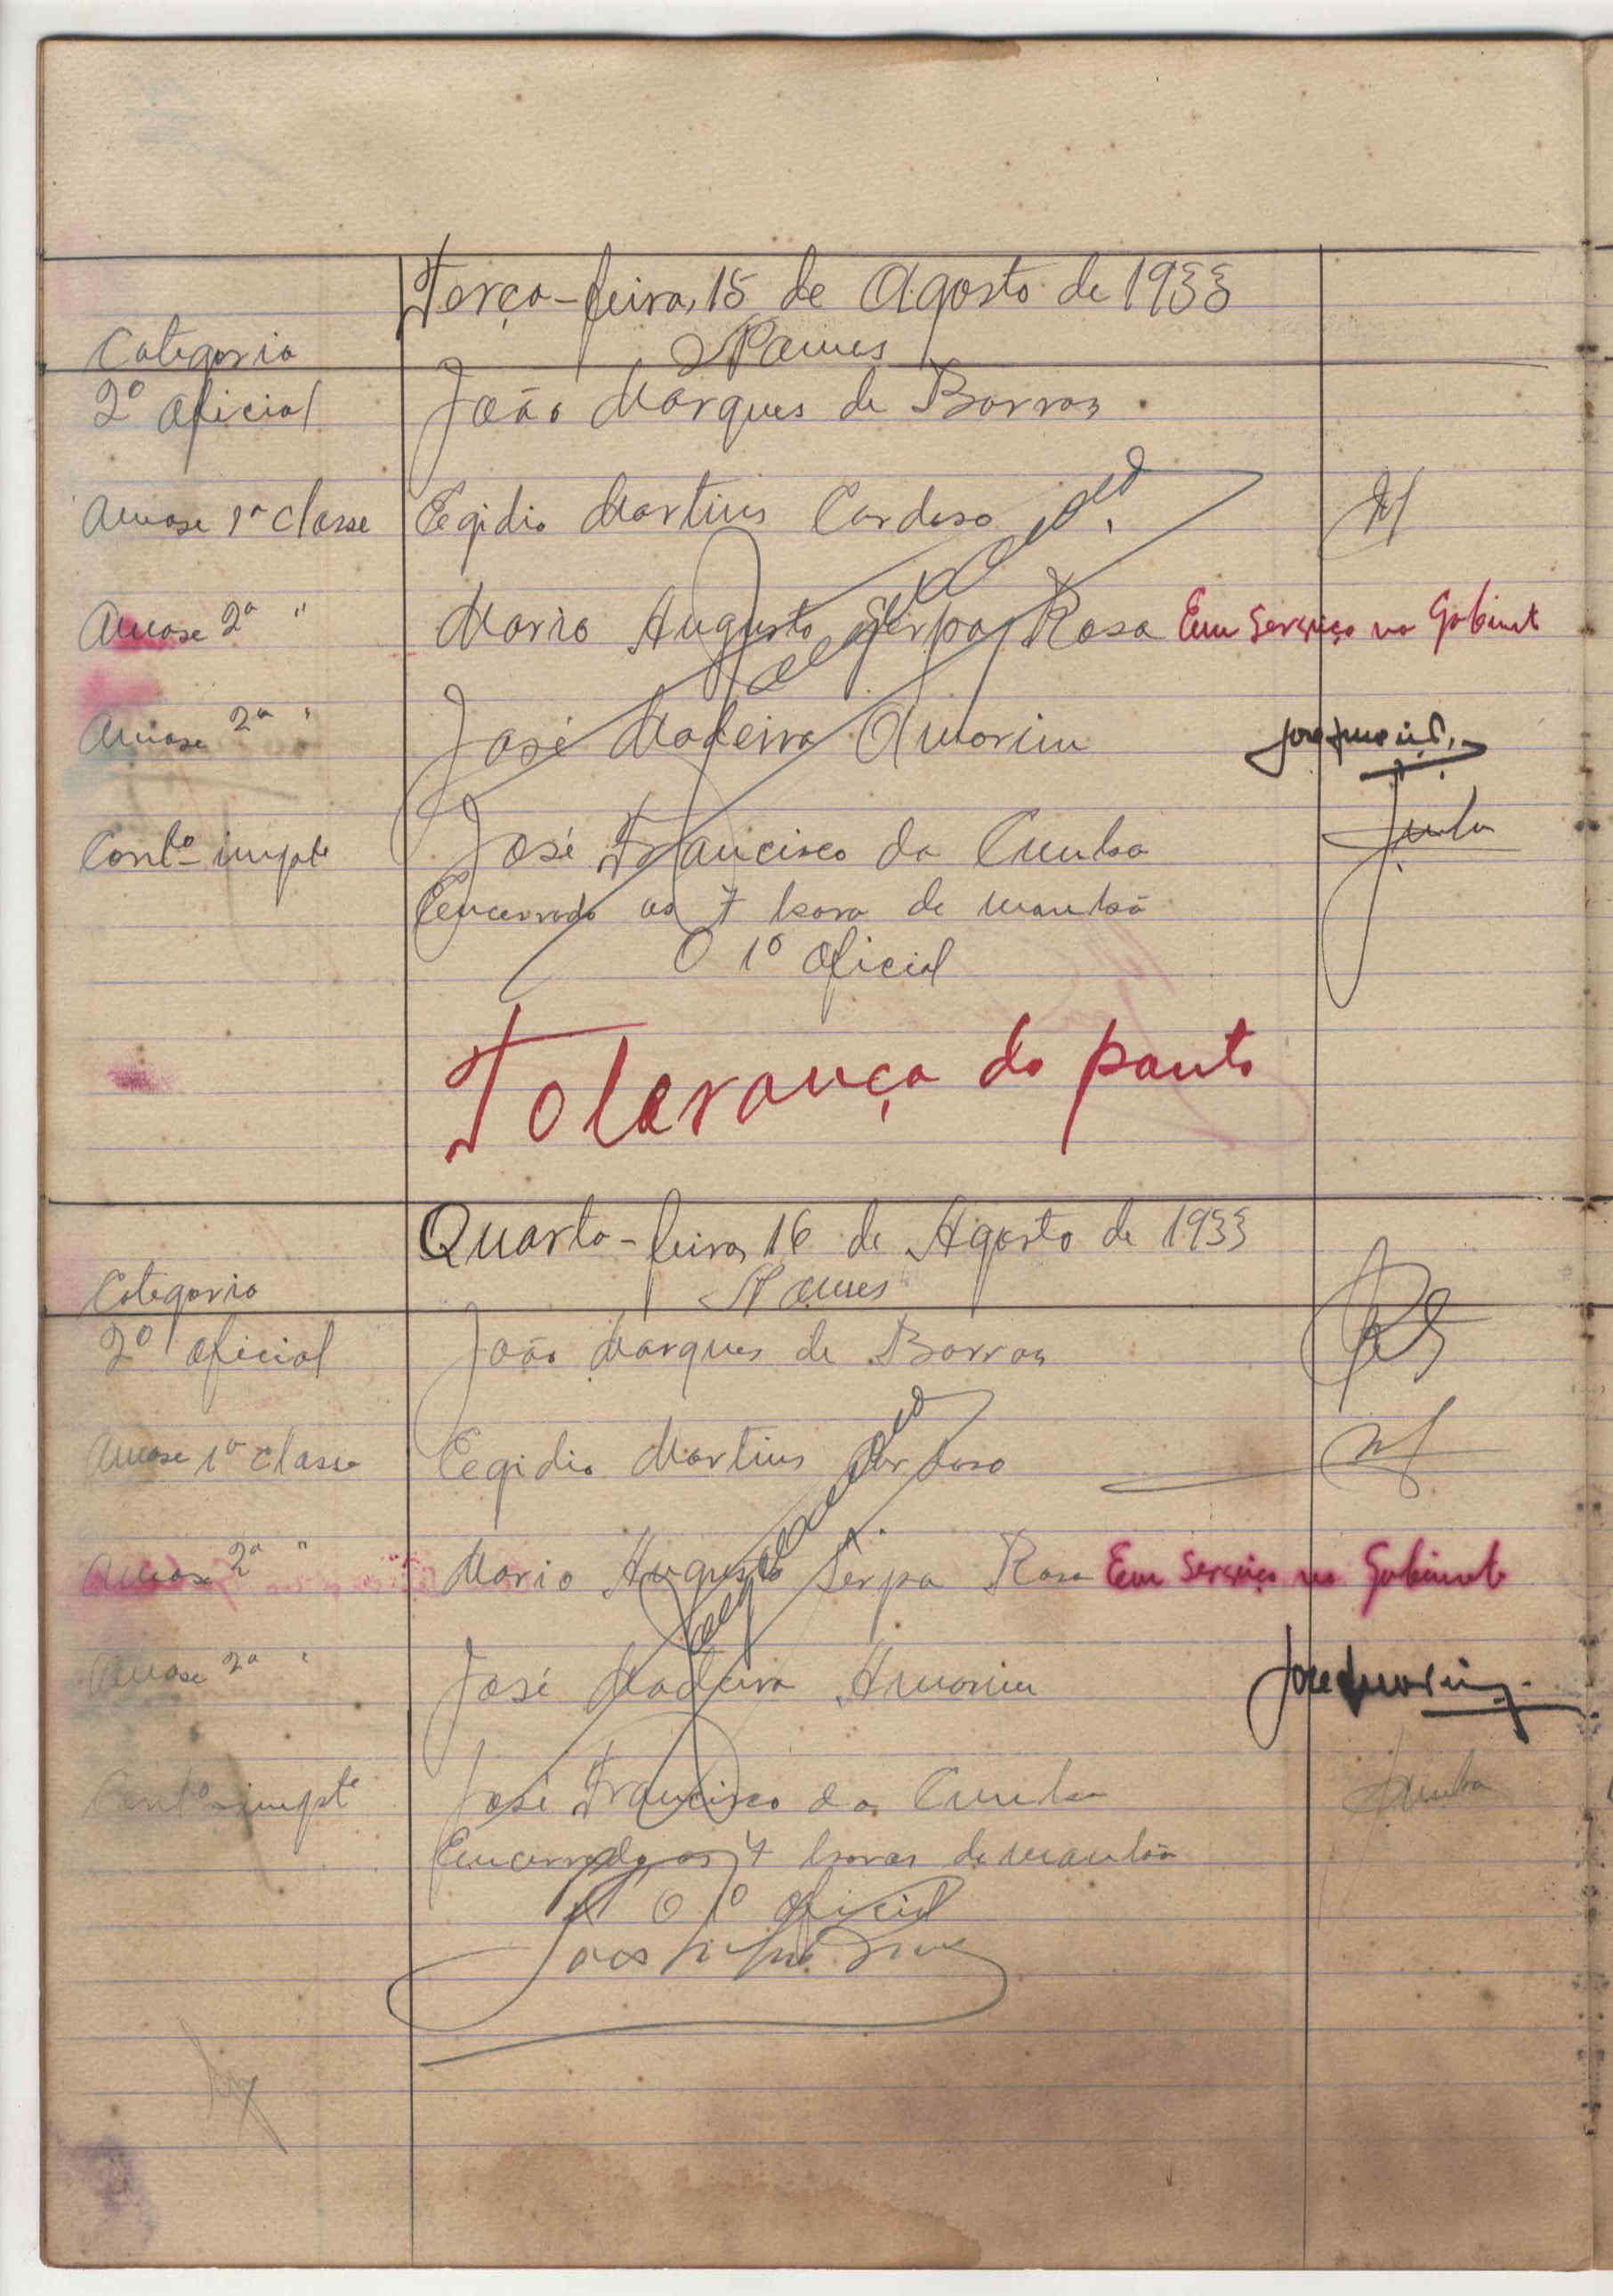 Terça-feira, 15 de Agosto de 1933
Categoria Nomes
2º Oficial João Marques de Barros
Amase 1ª classe Egidio Martins Cardoso
Amase 2ª " Mario Augusto Serpa Rosa Em Serviço no Gabinete
Amase 2ª " José Madeira Amorim José Amorim
Contº impte José Francisco da Cunha Cunha
Encerrado as 7 hora de manhã
O 1º Oficial
Tolerança do ponto
Quarta-feira, 16 de Agosto de 1933
Categoria Nomes
2º Oficial João Marques de Barros
Amase 1ª classe Egidio Martins Cardoso
Amase 2ª " Mario Augusto Serpa Rosa Em Serviço no Gabinete
Amase 2ª " José Madeira Amorim José Amorim
Contº impte José Francisco da Cunha Cunha
Encerrado as 7 horas de manhã
O 1º Oficial